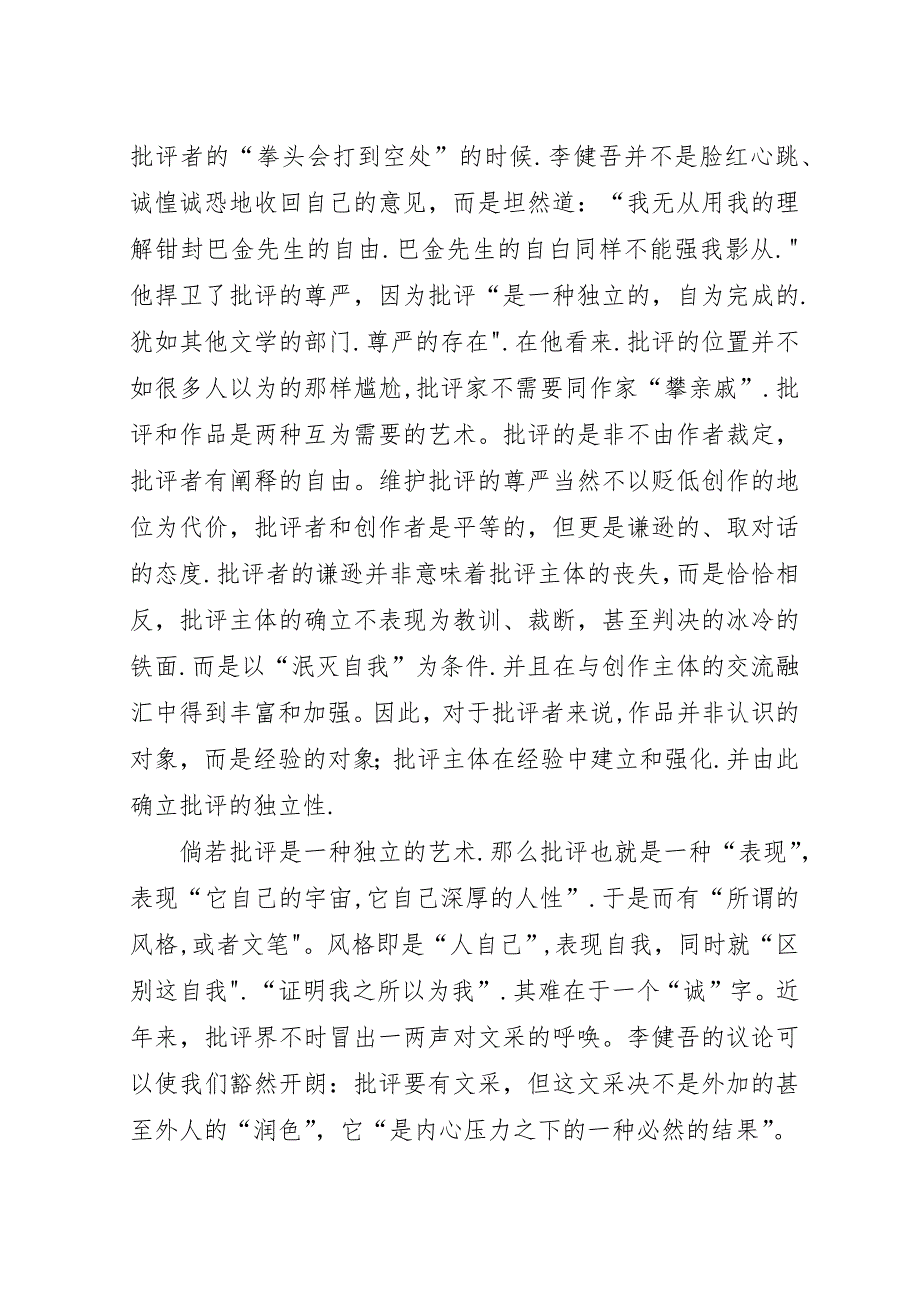 批评者的“拳头会打到空处”的时候.李健吾并不是脸红心跳、
诚惶诚恐地收回自己的意见，而是坦然道：“我无从用我的理
解钳封巴金先生的自由.巴金先生的自白同样不能强我影从."
他捍卫了批评的尊严，因为批评“是一种独立的，自为完成的.
犹如其他文学的部门.尊严的存在".在他看来.批评的位置并不
如很多人以为的那样尴尬,批评家不需要同作家“攀亲戚”.批
评和作品是两种互为需要的艺术。批评的是非不由作者裁定，
批评者有阐释的自由。维护批评的尊严当然不以贬低创作的地
位为代价，批评者和创作者是平等的，但更是谦逊的、取对话
的态度.批评者的谦逊并非意味着批评主体的丧失,而是恰恰相
反，批评主体的确立不表现为教训、裁断，甚至判决的冰冷的
铁面.而是以“泯灭自我”为条件.并且在与创作主体的交流融
汇中得到丰富和加强。因此，对于批评者来说,作品并非认识的
对象，而是经验的对象；批评主体在经验中建立和强化.并由此
确立批评的独立性.
倘若批评是一种独立的艺术.那么批评也就是一种“表现”，
表现“它自己的宇宙,它自己深厚的人性”.于是而有“所谓的
风格,或者文笔"。风格即是“人自己”,表现自我，同时就“区
别这自我".“证明我之所以为我”.其难在于一个“诚”字。近
年来，批评界不时冒出一两声对文采的呼唤。李健吾的议论可
以使我们豁然开朗：批评要有文采，但这文采决不是外加的甚
至外人的“润色”，它“是内心压力之下的一种必然的结果”。